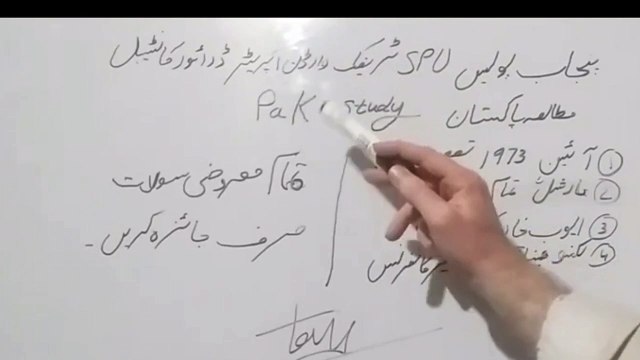 پنجاب پولیس SPU ٹریفک وارڈن اپریٹر ڈرائیور کانسٹیبل
مطالعہ پاکستان Pak study
① آئین 1973
② مارشل
③ ایوب
④
کانفرنس
تمام معروضی سوالات
صرف جائزہ کریں۔